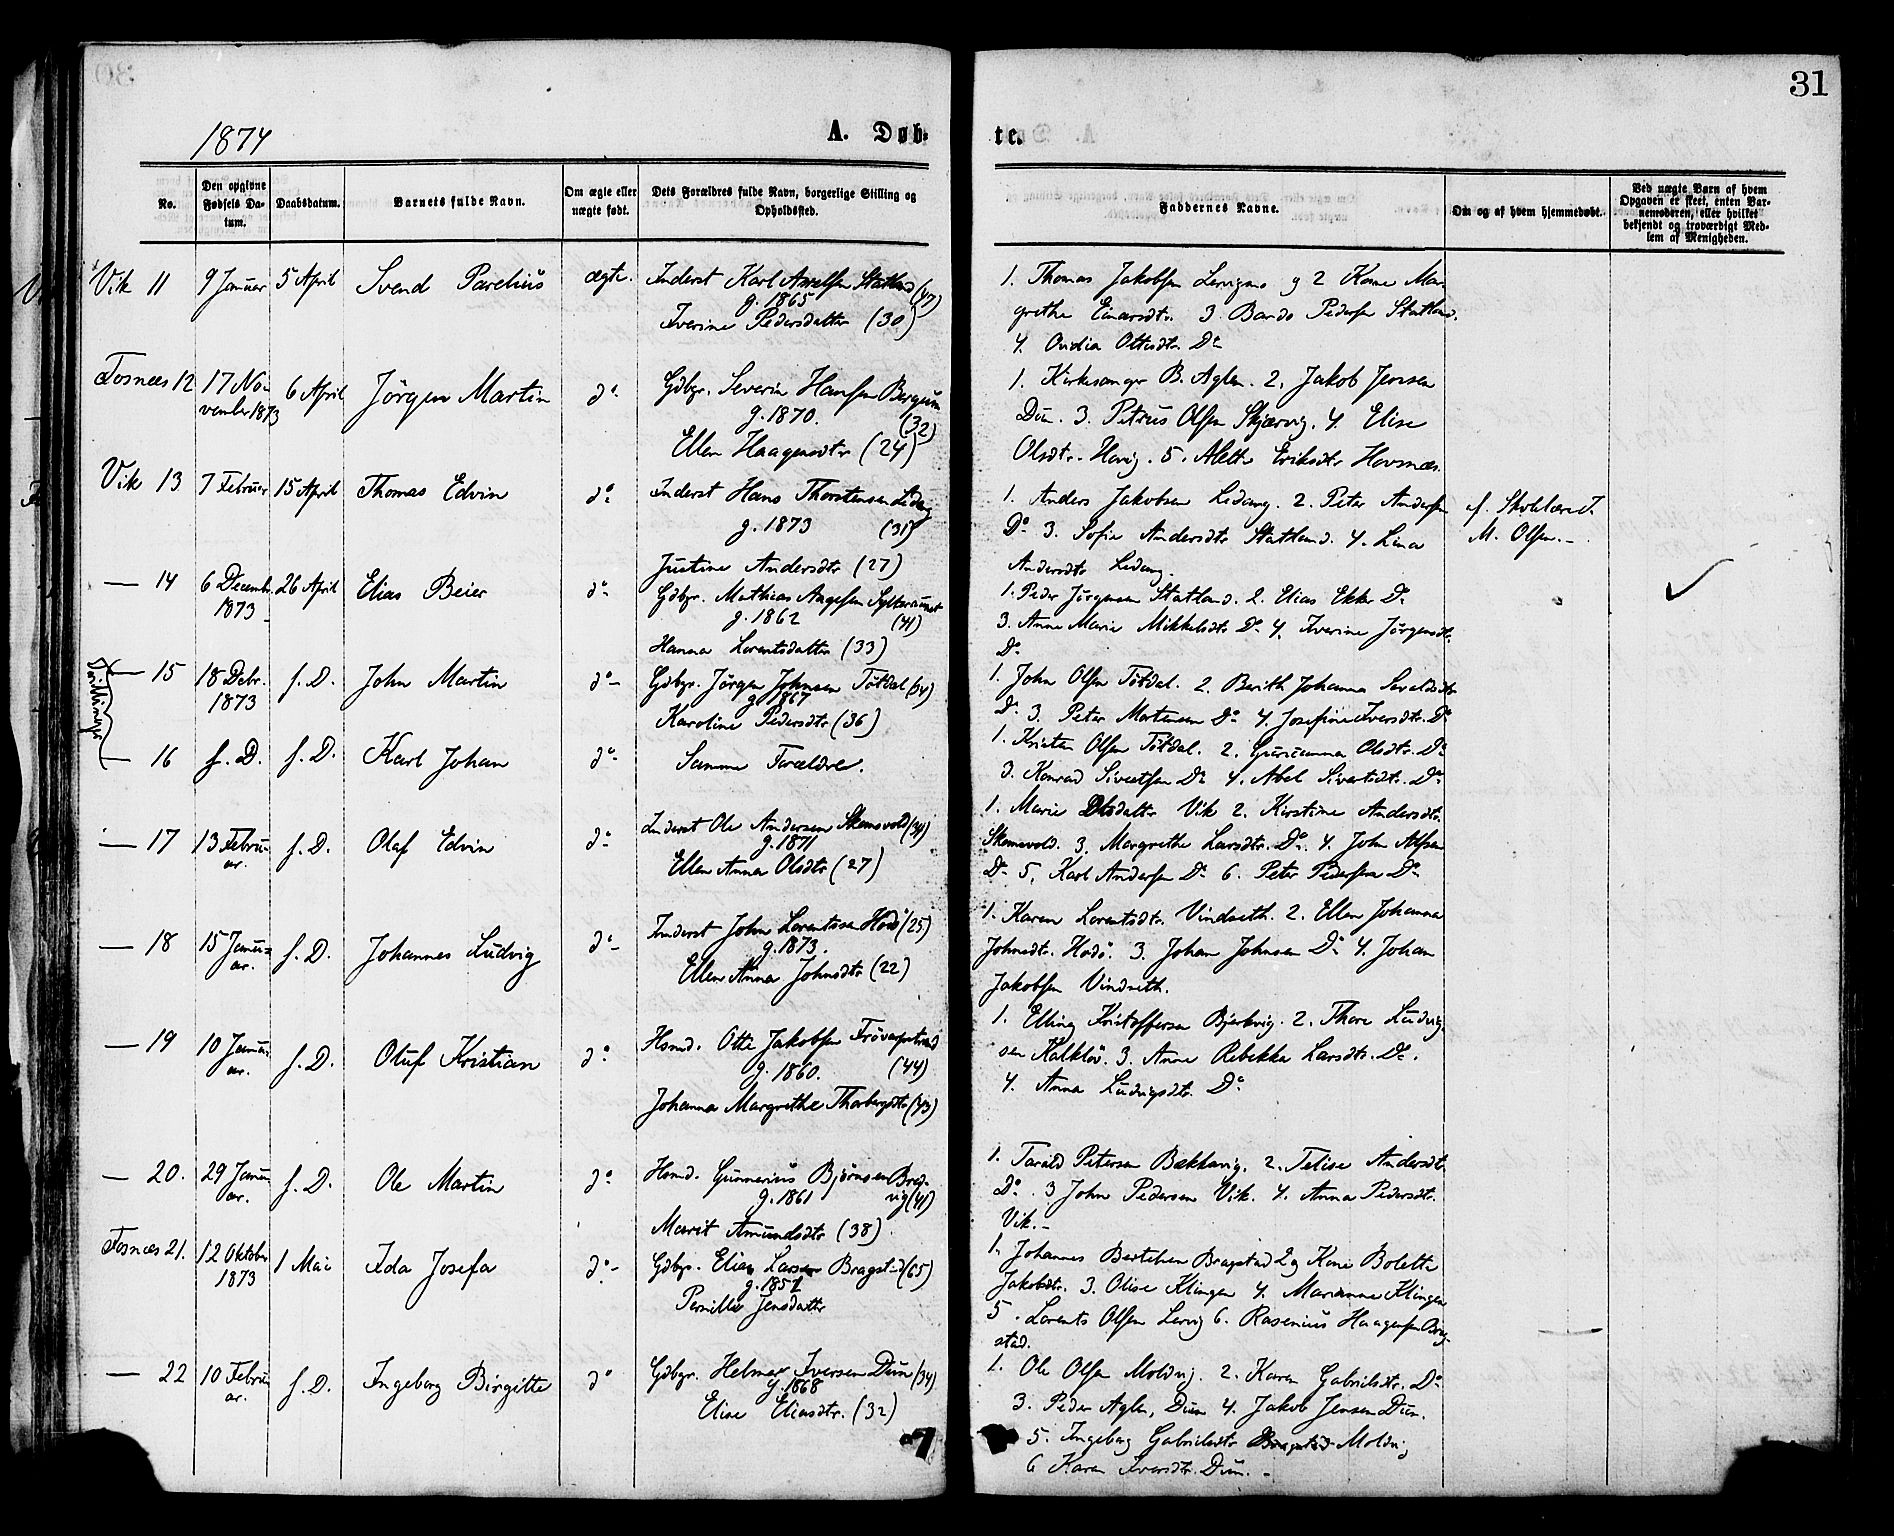 31
1874
A. Døb-
te.
No.
Den opgivne Fødsels Da-tum.
Daabsdatum.
Barnets fulde Navn.
Om ægte eller uægte født.
Dets Forældres fulde Navn, borgerlige Stilling og Opholdssted.
Faddernes Navne.
Om og af hvem hjemmedøbt.
Ved uægte Børn af hvem Opgaven er skeet, enten Bar-nemoderen, eller hvilket bekjendt og troværdigt Med-lem af Menigheden.
Vik 11 9 Januar 5 April Svend Parelius ægte. Inderst Karl Axelsen Statland (47)
g. 1865
Iverine Pedersdatter (30)
1. Thomas Jakobsen og 2 Kone Mar-
grethe Einarsdtr. 3. Bardo Pedersen Statland.
4. Ovidia Ottesdtr. Do
Fosnæs 12 17 No- 6 April Jörgen Martin do Gdbgr. Severin Hansen Bergum
vember 1873 g. 1870. (32)
Ellen Haagensdtr (24)
1. Kirkesanger B. Aglen. 2. Jakob Jensen
Dun. 3. Petrus Olsen Skjærvig. 4. Elise
Olsdtr. Hovig. 5. Aleth Eriksdtr Hovnæs.
Vik 13 7 Februar 15 April Thomas Edvin do Inderst Hans Thorstensen Lidang
g. 1873 (31)
Justine Andersdtr (27)
1. Anders Jakobsen Ledang. 2. Peter Andersen
Do 3. Sofie Andersdtr Statland. 4. Lina
Andersdtr Ledang.
af Skolelærer J.
M. Olsen.
— 14 6 Decembr. 26 April Elias Beier do Gdbgr. Mathias Aagesen
1873 g. 1862 (41)
Hanna Lorentsdatter (33)
1. Peder Jörgensen Statland. 2. Elias Ekker Do
3. Anne Marie Mikkelsdtr Do 4. Iverine Jörgensdtr.
Do
Tvillinger
— 15 18 Debr. f. D. John Martin do Gdbgr. Jörgen Johnsen Tötdal (34)
1873 g. 1867
Karoline Pedersdtr (36)
1. John Olsen Tötdal. 2. Berith Johanna Sevaldsdtr
Do 3. Peter Mortensen Do 4. Josefine Iversdtr. Do
— 16 f. D. f. D. Karl Johan do Samme Forældre.
1. Kristen Olsen Tötdal. 2. Gurianna Olsdtr. Do
3. Konrad Sivertsen Do 4. Abel Sivertsdtr. Do
— 17 13 Febru- f. D. Olaf Edvin do Inderst Ole Andersen Skomsvold (34)
ar. g. 1871
Ellen Anna Olsdtr (27)
1. Marie Olsdatter Vik 2. Kirstine Andersdtr.
Skomsvold. 3. Margrethe Larsdtr. Do. 4. John Alfsen
Do 5. Karl Andersen Do 6. Peter Pedersen Do
— 18 15 Janu- f. D. Johannes Ludvig do Inderst John Lorentssen Hodö (25)
ar. g. 1873.
Ellen Anna Johnsdtr (22)
1. Karen Lorentsdtr. Vindseth. 2. Ellen Johanna
Johnsdtr. Hodö. 3. Johan Johnsen Do 4. Johan
Jakobsen Vindseth.
— 19 10 Janu- f. D. Oluf Kristian do Hsmd. Otte Jakobsen
ar. g. 1860. (44)
Johanna Margrethe Thorbergsdtr (43)
1. Elling Kristoffersen Bjerkvig. 2. Thore Ludvig-
sen Kalklöv. 3. Anne Rebekka Larsdtr. Do.
4. Anna Ludvigsdtr. Do
— 20. 29 Janu- f. D. Ole Martin do Hsmd. Gunnerius Björnsen Brag-
ar. g. 1861 vig (41)
Marit Amundsdtr (38)
1. Tarald Petersen Bækkavig. 2. Telise Andersdt.
Do. 3 John Pedersen Vik. 4. Anna Pedersdtr.
Vik.
Fosnæs 21. 12 Oktober 1 Mai Ida Josefa do Gdbgr. Elias Larsen Bragstad (65)
1873 g. 1857
Pernille Jensdatter
1. Johannes Bertelsen Bragstad 2 og Kone Bolette
Jakobsdtr. 3. Olise Klingen 4. Marianne Klingen
5. Lorents Olsen Lervig 6. Rasenius Haagensen Brag-
stad.
— 22 10 Febru- f. D. Ingeborg Birgitte do Gdbgr. Helmer Iversen Dun (34)
ar. g. 1868
Elise Eliasdtr. (32)
1. Ole Olsen Moldvig. 2. Karen Gabrielsdtr. Do
3. Peder Aglen, Dun 4. Jakob Jensen Dun.
5. Ingeborg Gabrielsdtr Moldvig
6 Karen Iversdtr. Dun.